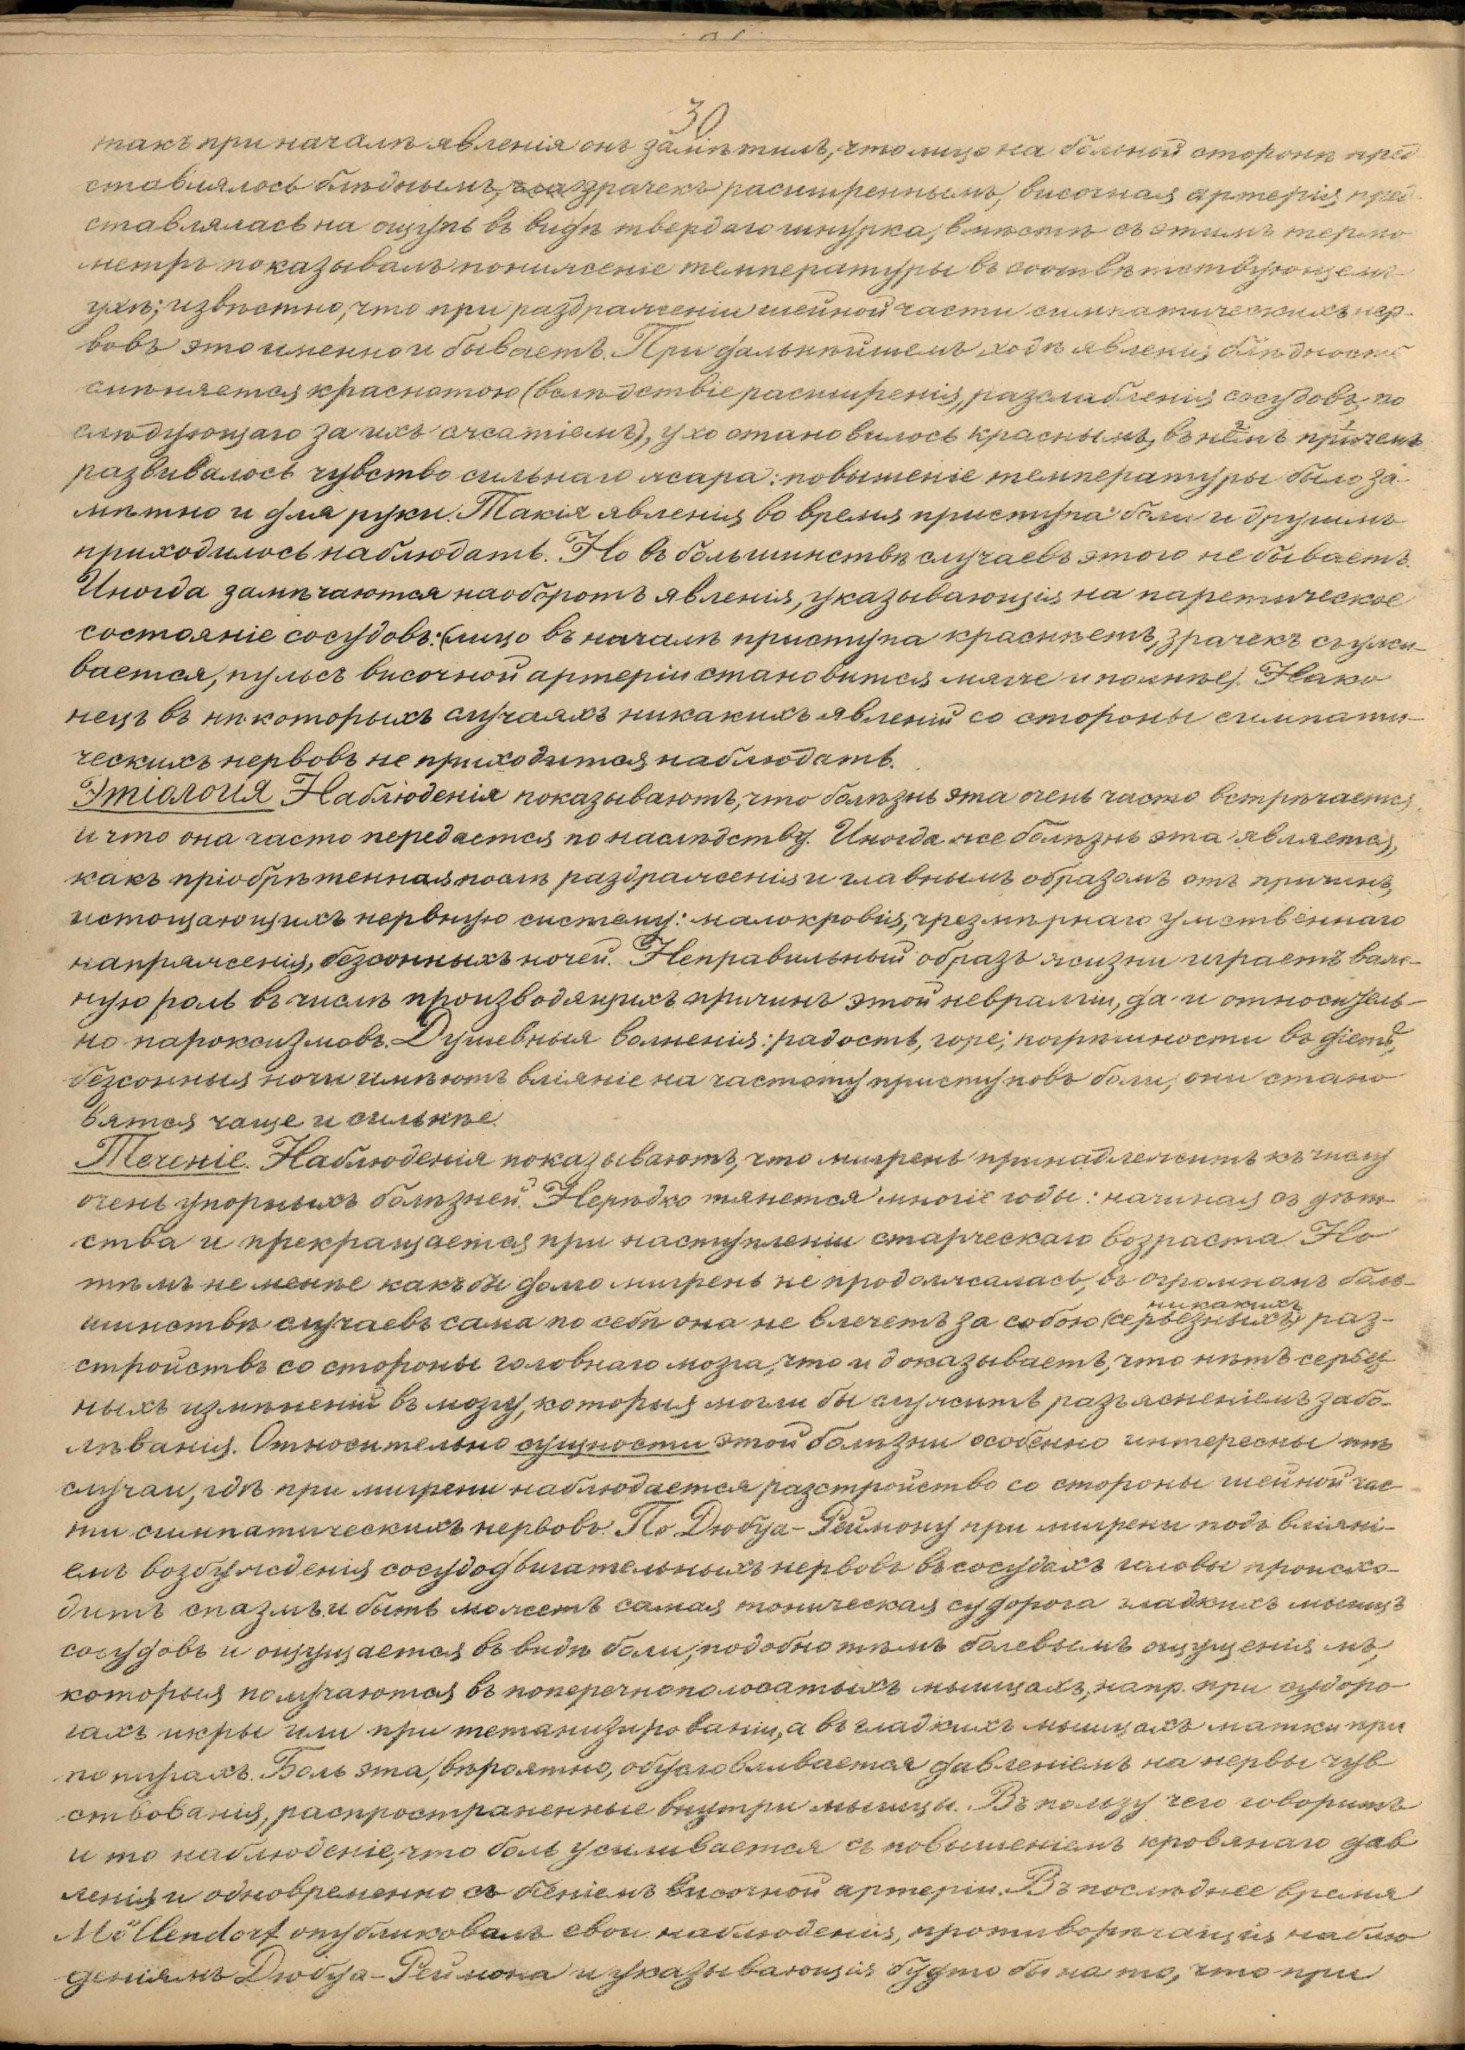 30
такъ при началѣ явленія онъ замѣтилъ, что лицо на больной сторонѣ пред-
ставлялось блѣднымъ, зрачекъ расширеннымъ, височная артерія пред-
ставлялась на ощупь въ видѣ твердаго шнурка, вмѣстѣ съ этимъ термо
метръ показывалъ пониженіе температуры въ соотвѣтствующемъ
ухѣ; извѣстно, что при раздраженіи шейной части симпатическихъ нер-
вовъ это именно и бываетъ. При дальнѣйшемъ ходѣ явленія блѣдность
смѣняется краснотою (вслѣдствіе расширенія, разслабленія сосудовъ, по
слѣдующаго за ихъ сжатіемъ), ухо становилось краснымъ, въ нёмъ причемъ
развивалось чувство сильнаго жара: повышеніе температуры было за-
мѣтно и для руки. Такія явленія во время приступа боли и другимъ
приходилось наблюдать. Но въ большинствѣ случаевъ этого не бываетъ.
Иногда замѣчаются наоборотъ явленія, указывающія на паретическое
состояніе сосудовъ: (лицо въ началѣ приступа краснѣетъ, зрачекъ съужи-
вается, пульсъ височной артеріи становится мягче и полнѣе). Нако
нецъ въ нѣкоторыхъ случаяхъ никакихъ явленій со стороны симпати-
ческихъ нервовъ не приходится наблюдать.
Этіологія Наблюденія показываютъ, что болѣзнь эта очень часто встрѣчается,
и что она часто передается по наслѣдству. Иногда же болѣзнь эта является,
какъ пріобрѣтенная послѣ раздраженія и главнымъ образомъ отъ причинъ,
истощающихъ нервную систему: малокровія, чрезмѣрнаго умственнаго
напряженія, безсонныхъ ночей. Неправильный образъ жизни играетъ важ-
ную роль въ числѣ производящихъ причинъ этой невралгіи, да и относитель-
но пароксизмовъ. Душевныя волненія: радость, горе; погрѣшности въ діетѣ,
безсонныя ночи имѣютъ вліяніе на частоту приступовъ боли, они стано
вятся чаще и сильнѣе.
Теченіе. Наблюденія показываютъ, что мигрень принадлежитъ къ числу
очень упорныхъ болѣзней. Нерѣдко тянется многіе годы: начиная съ дѣт-
ства и прекращается при наступленіи старческаго возраста. Но
тѣмъ не менѣе какъ бы долго мигрень не продолжалась, въ огромномъ боль-
шинствѣ случаевъ сама по себѣ она не влечетъ за собою (серьезныхъ) никакихъ раз-
стройствъ со стороны головнаго мозга, что и доказываетъ, что нѣтъ серьез
ныхъ измѣненій въ мозгу, которыя могли бы служить разъясненіемъ забо-
лѣванія. Относительно сущности этой болѣзни особенно интересны тѣ
случаи, гдѣ при мигрени наблюдается разстройство со стороны шейной час
ти симпатическихъ нервовъ. По Дюбуа-Реймону при мигрени подъ вліяні-
емъ возбужденія сосудодвигательныхъ нервовъ въ сосудахъ головы происхо-
дитъ спазмъ и быть можетъ самая тоническая судорога гладкихъ мышцъ
сосудовъ и ощущается въ видѣ боли, подобно тѣмъ болевымъ ощущеніямъ,
которыя получаются въ поперечнополосатыхъ мышцахъ, напр. при судоро
гахъ икры или при тетанизированіи, а въ гладкихъ мышцахъ матки при
потугахъ. Боль эта, вѣроятно, обусловливается давленіемъ на нервы чув
ствованія, распространенные внутри мышцы. Въ пользу чего говоритъ
и то наблюденіе, что боль усиливается съ повышеніемъ кровянаго дав
ленія и одновременно съ біеніемъ височной артеріи. Въ послѣднее время
Möllendorf опубликовалъ свои наблюденія, противорѣчащія наблю
деніямъ Дюбуа-Реймона и указывающія будто бы на то, что при